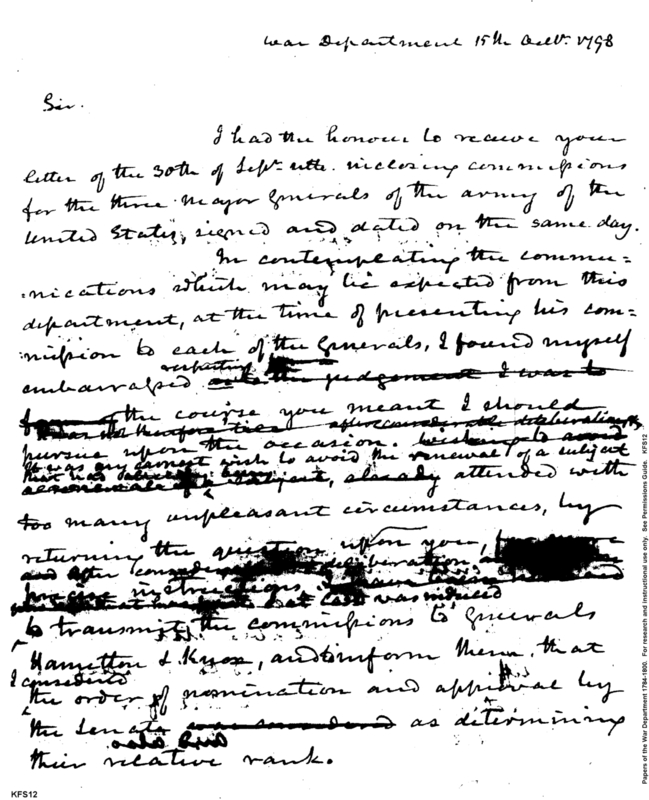 War Department 15th Octbr. 1798
Sir.
I had the honour to receive your
letter of the 30th of Sepr. ulto. inclosing commissions
for the three major Generals of the army of the
United States, signed and dated on the same day.
In contemplating the commu=
=nications which may be expected from this
department, at the time of presenting his com=
mission to each of the Generals, I found myself
respecting
embarrassed the judgement I was to
form the course you meant I should
after considerable deliberation
pursue upon the occasion.
It was my earnest wish to avoid the renewal of a subject
that was
subject, already attended with
too many unpleasant circumstances, by
returning the question upon you,
and after deliberation
precise instructions, and
at last was induced
to transmit the commissions to Generals
Hamilton & Knox, and inform them that
I considered
the order of nomination and approval by
the Senate was considered as determining
their relative rank.
KFS12
Papers of the War Department 1784-1800. For research and instructional use only. See Permissions Guide. KFS12